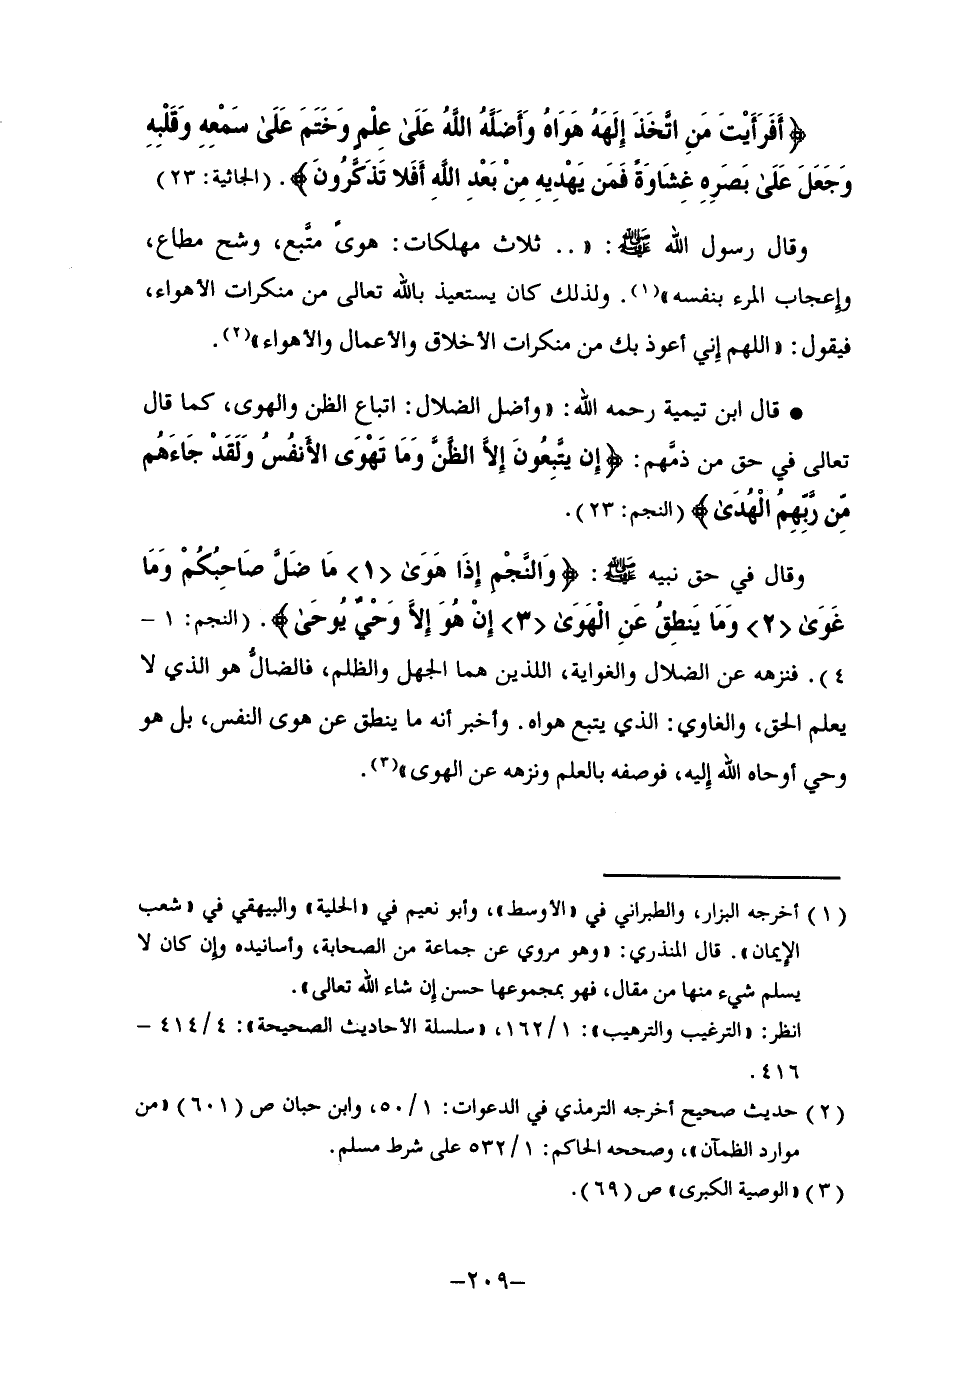 ﴿ أَفَرَأَيْتَ مَنِ اتَّخَذَ إِلَهَهُ هَوَاهُ وَأَضَلَّهُ اللَّهُ عَلَىٰ عِلْمٍ وَخَتَمَ عَلَىٰ سَمْعِهِ وَقَلْبِهِ
وَجَعَلَ عَلَىٰ بَصَرِهِ غِشَاوَةً فَمَن يَهْدِيهِ مِنْ بَعْدِ اللَّهِ أَفَلا تَذَكَّرُونَ ﴾ . (الجاثية: ٢٣)
وقال رسول الله ﷺ : « .. ثلاث مهلكات: هوىً متَّبع، وشح مطاع،
وإعجاب المرء بنفسه»(١). ولذلك كان يستعيذ بالله تعالى من منكرات الأهواء،
فيقول: «اللهم إني أعوذ بك من منكرات الأخلاق والأعمال والأهواء»(٢).
● قال ابن تيمية رحمه الله: «وأضل الضلال: اتباع الظن والهوى، كما قال
تعالى في حق من ذمَّهم: ﴿ إِن يَتَّبِعُونَ إِلاَّ الظَّنَّ وَمَا تَهْوَى الأَنفُسُ وَلَقَدْ جَاءَهُم
مِّن رَّبِّهِمُ الْهُدَىٰ ﴾ (النجم: ٢٣).
وقال في حق نبيه ﷺ : ﴿ وَالنَّجْمِ إِذَا هَوَىٰ <١> مَا ضَلَّ صَاحِبُكُمْ وَمَا
غَوَىٰ <٢> وَمَا يَنطِقُ عَنِ الْهَوَىٰ <٣> إِنْ هُوَ إِلاَّ وَحْيٌ يُوحَىٰ ﴾ . (النجم: ١ -
٤). فنزهه عن الضلال والغواية، اللذين هما الجهل والظلم، فالضالُّ هو الذي لا
يعلم الحق، والغاوي: الذي يتبع هواه. وأخبر أنه ما ينطق عن هوى النفس، بل هو
وحي أوحاه الله إليه، فوصفه بالعلم ونزهه عن الهوى»(٣).
(١) أخرجه البزار، والطبراني في «الأوسط»، وأبو نعيم في «الحلية» والبيهقي في «شعب
الإيمان». قال المنذري: «وهو مروي عن جماعة من الصحابة، وأسانيده وإن كان لا
يسلم شيء منها من مقال، فهو بمجموعها حسن إن شاء الله تعالى».
انظر: «الترغيب والترهيب»: ١/ ١٦٢، «سلسلة الأحاديث الصحيحة»: ٤/ ٤١٤ -
٤١٦ .
(٢) حديث صحيح أخرجه الترمذي في الدعوات: ١/ ٥٠، وابن حبان ص (٦٠١) «من
موارد الظمآن»، وصححه الحاكم: ١/ ٥٣٢ على شرط مسلم.
(٣) «الوصية الكبرى» ص (٦٩).
-٢٠٩-